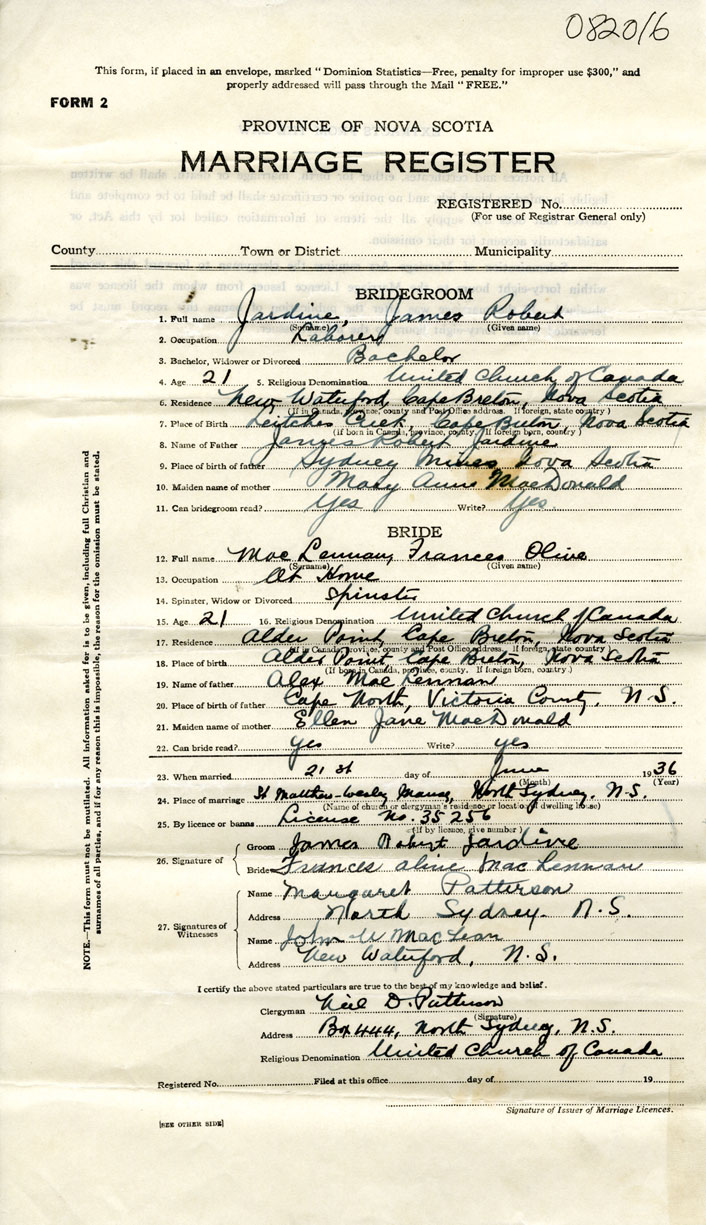 082016
This form, if placed in an envelope, marked "Dominion Statistics—Free, penalty for improper use $300," and
properly addressed will pass through the Mail "FREE."
FORM 2
PROVINCE OF NOVA SCOTIA
MARRIAGE REGISTER
REGISTERED No.
(For use of Registrar General only)
County Town or District Municipality
BRIDEGROOM
1. Full name Jardine, James Robert
(Surname) (Given name)
2. Occupation Laborer
3. Bachelor, Widower or Divorced Bachelor
4. Age 21 5. Religious Denomination United Church of Canada
6. Residence New Waterford, Cape Breton, Nova Scotia
(If in Canada, province, county and Post Office address. If foreign, state country)
7. Place of Birth Leitches Creek, Cape Breton, Nova Scotia
(if born in Canada, province, county. If foreign born, country)
8. Name of Father James Robert Jardine
9. Place of birth of father Sydney Mines, Nova Scotia
10. Maiden name of mother Mary Anne MacDonald
11. Can bridegroom read? Yes Write? Yes
BRIDE
12. Full name Mac Lennan, Frances Olive
(Surname) (Given name)
13. Occupation At Home
14. Spinster, Widow or Divorced Spinster
15. Age 21 16. Religious Denomination United Church of Canada
17. Residence Alder Point, Cape Breton, Nova Scotia
(If in Canada, province, county and Post Office address. If foreign, state country)
18. Place of birth Alder Point, Cape Breton, Nova Scotia
(If born in Canada, province, county. If foreign born, country.)
19. Name of father Alex Mac Lennan
20. Place of birth of father Cape North, Victoria County, N.S.
21. Maiden name of mother Ellen Jane MacDonald
22. Can bride read? yes Write? yes
23. When married 21st day of June 1936
(Month) (Year)
24. Place of marriage St Matthew-Wesley Manse, North Sydney, N.S.
(Name of church or clergyman's residence or location of dwelling house)
25. By licence or banns License No. 35256
(If by licence, give number)
26. Signature of
Groom James Robert Jardine
Bride Frances Olive MacLennan
27. Signatures of Witnesses
Name Margaret Patterson
Address North Sydney. N.S.
Name John W MacLean
Address New Waterford, N.S.
I certify the above stated particulars are true to the best of my knowledge and belief.
Clergyman Neil D. Patterson
(Signature)
Address Box 444, North Sydney, N.S.
Religious Denomination United Church of Canada
Registered No. Filed at this office day of 19
Signature of Issuer of Marriage Licences.
[SEE OTHER SIDE]
NOTE.—This form must not be mutilated. All information asked for is to be given, including full Christian and
surnames of all parties, and if for any reason this is impossible, the reason for the omission must be stated.